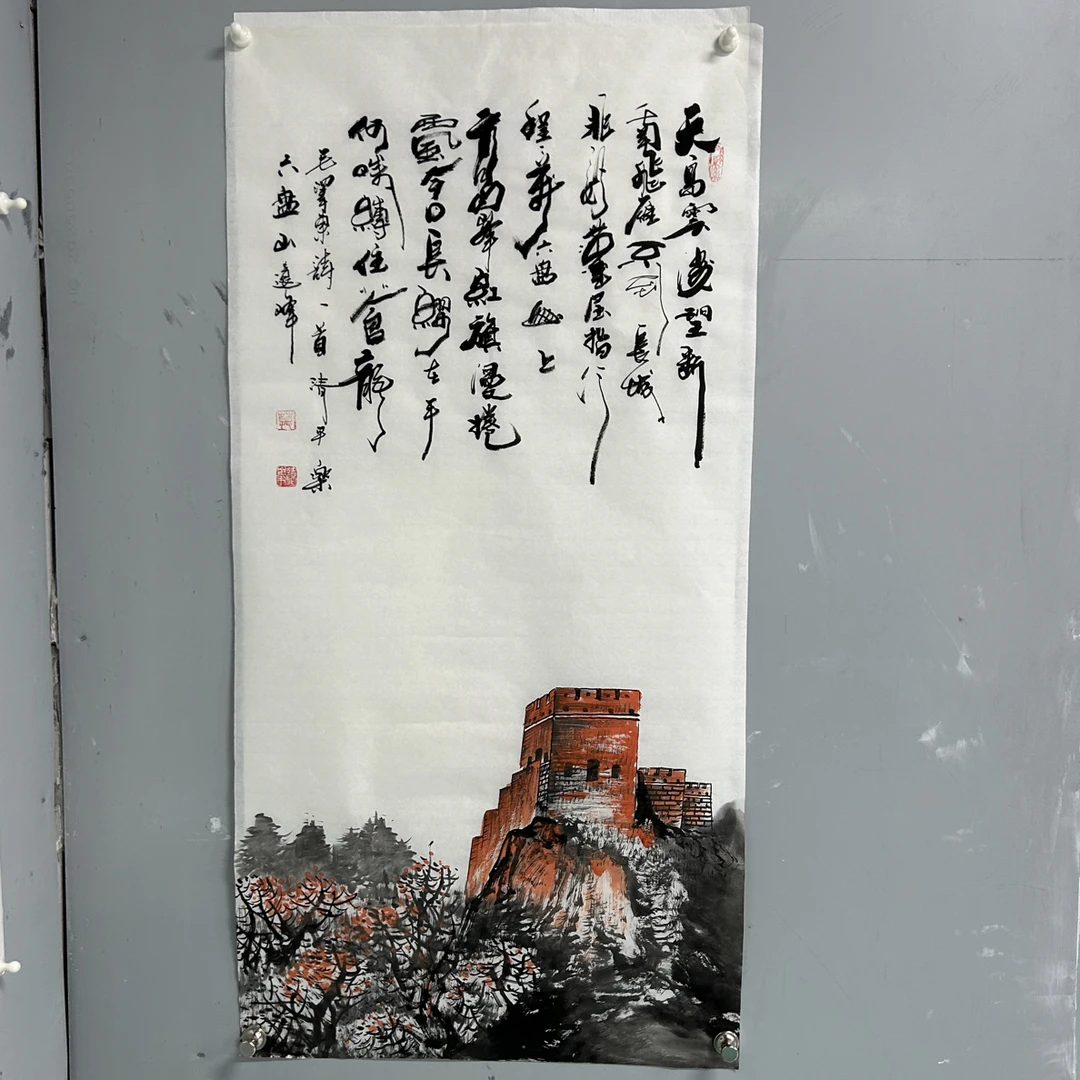 天高雲淡望断
南飛雁不到長城
非好漢屈指行
程二萬六盘山上
高峰紅旗漫捲
西風今日長纓在手
何時縛住蒼龍
毛澤東詩一首清平樂
六盘山遠峰